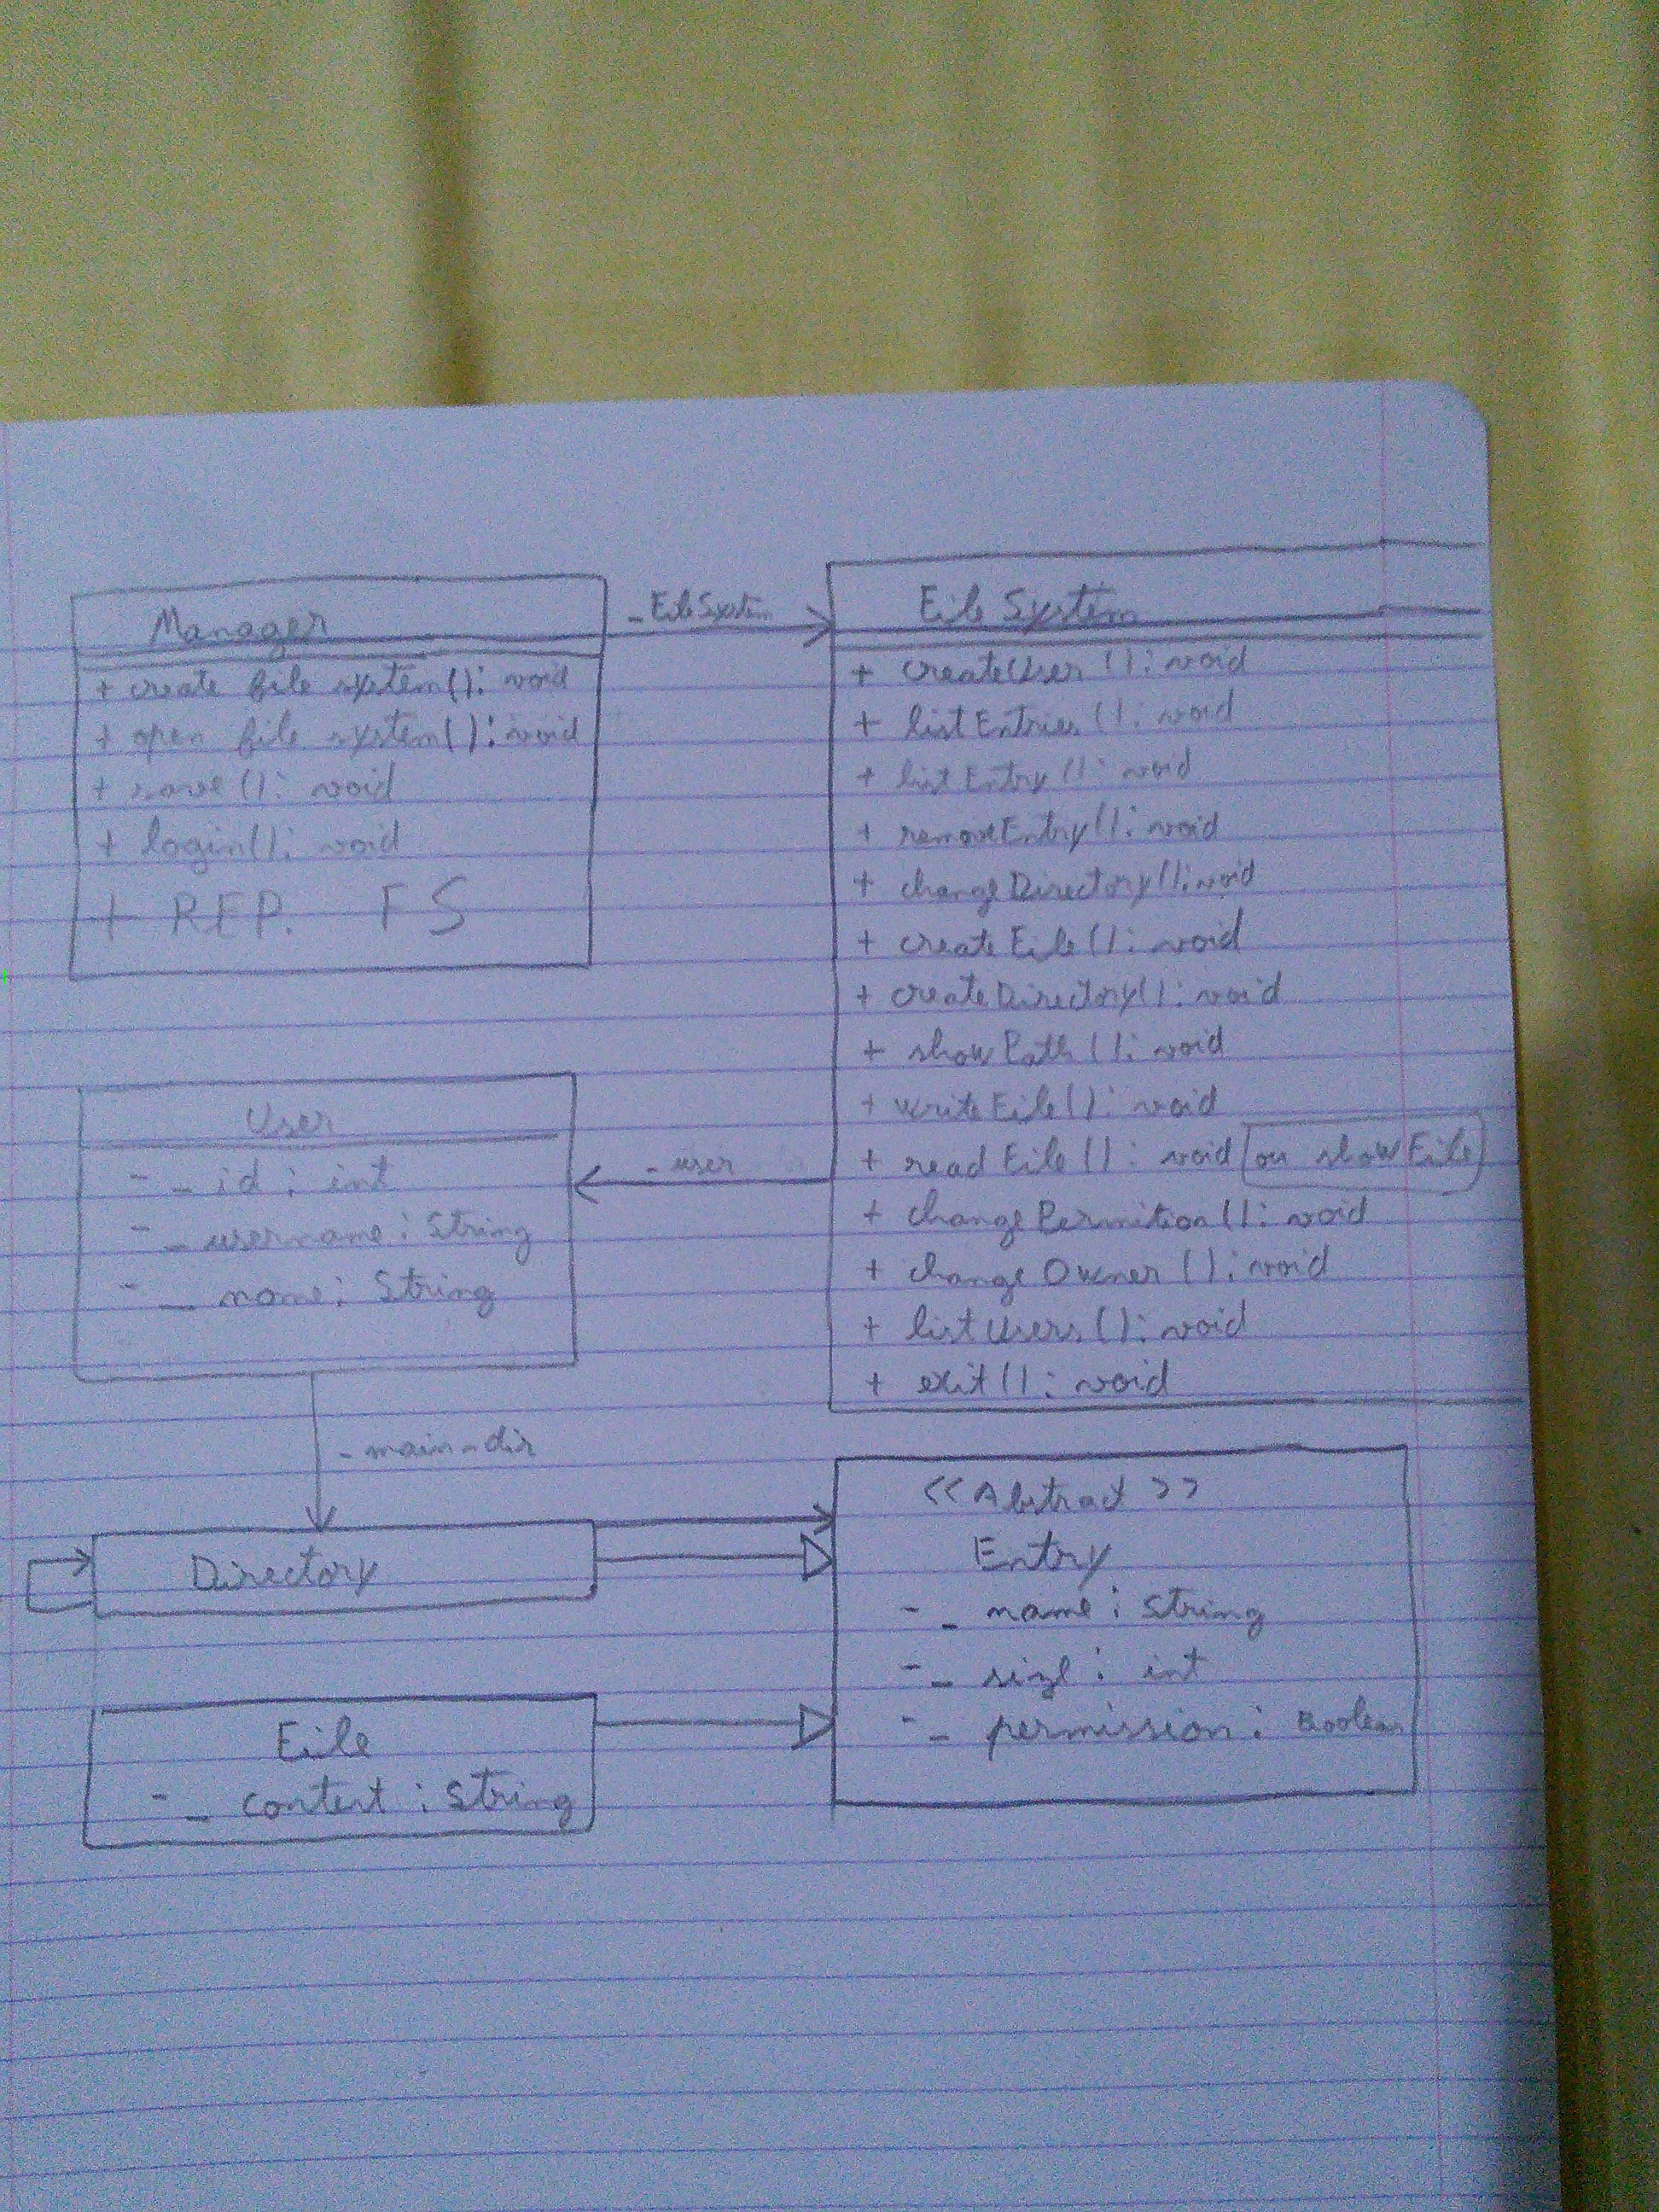 Manager
+ create file system(): void
+ open file system(): void
+ save(): void
+ login(): void
+ REP. FS
_FileSystem
File System
+ createUser(): void
+ listEntries(): void
+ listEntry(): void
+ removeEntry(): void
+ changeDirectory(): void
+ createFile(): void
+ createDirectory(): void
+ showPath(): void
+ writeFile(): void
+ readFile(): void ou showFile
+ changePermition(): void
+ changeOwner(): void
+ listUsers(): void
+ exit(): void
User
- _ id : int
- _ username : String
- _ name : String
- user
- main-dir
Directory
<<Abstract>>
Entry
- _ name : String
- _ size : int
- _ permission : Boolean
File
- _ content : String